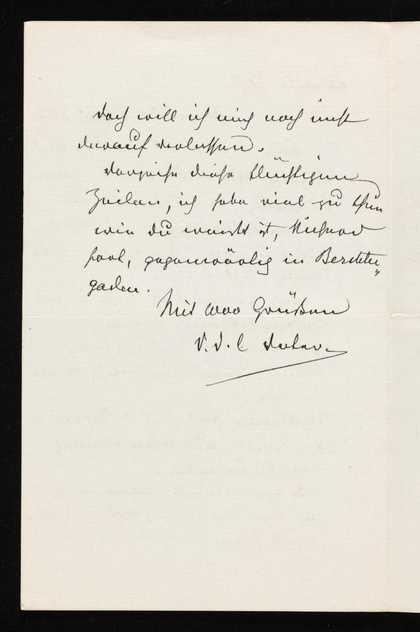 doch will ich mich noch nicht
darauf verlassen.
Verzeihe diese flüchtigen
Zeilen, ich habe viel zu thun
wie du weißt ist,
gegenwärtig in Berchtes„
gaden.
Mit 1000 Grüßen